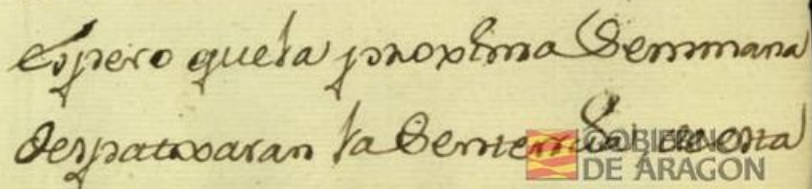 espero que la proxima Semmana
despataxaran la Sentensia, de esta
GOBIERNO
DE ARAGON